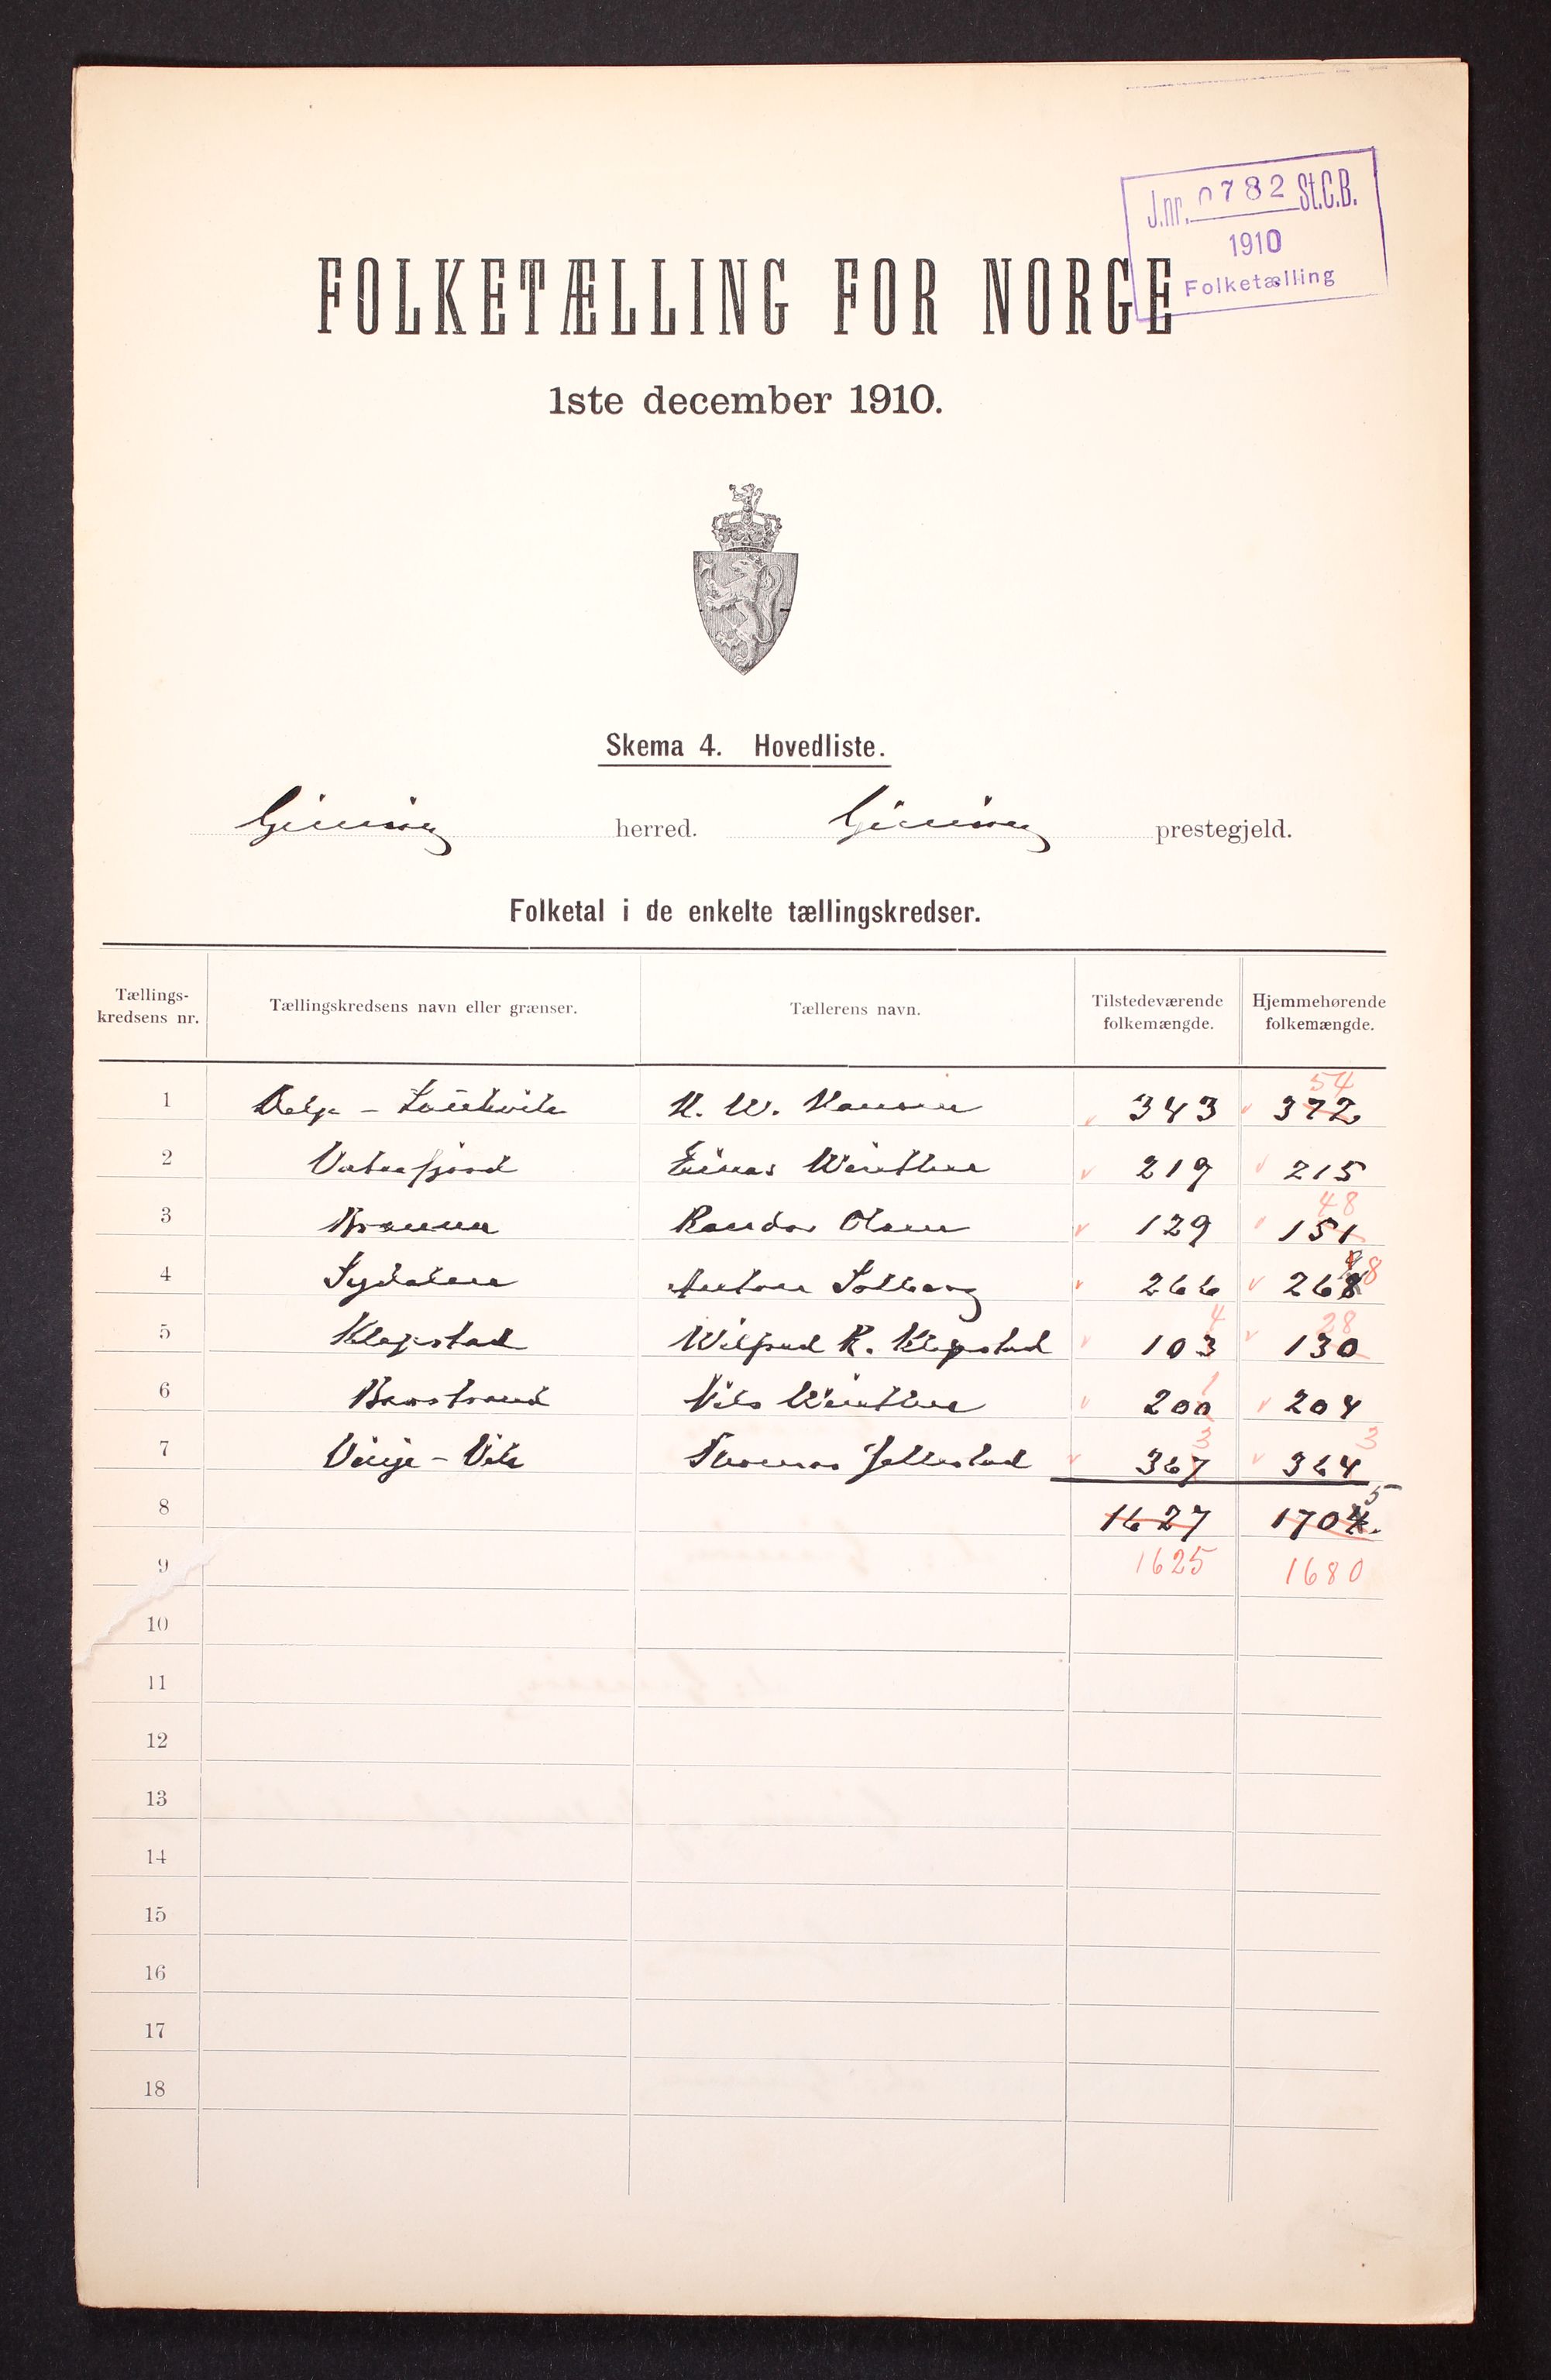 J.nr. 0782 St.C.B.
1910
Folketælling
FOLKETÆLLING FOR NORGE
1ste december 1910.
Skema 4. Hovedliste.
Gimsøy herred. Gimsøy prestegjeld.
Folketal i de enkelte tællingskredser.
Tællings-kredsens nr. Tællingskredsens navn eller grænser. Tællerens navn. Tilstedeværende folkemængde. Hjemmehørende folkemængde.
54
1 H. W. Hansen 343 372
2 Vaterfjord Einar Winther 219 215
48
3 Brenna Randor Olsen 129 151
4 Sydalen Anton Solberg 266 268 8
4 28
5 Klepstad Wilfred R. Klepstad 103 130
1
6 Barstrand Nils Winther 200 204
3 3
7 Vinje - Vik Thomas Jellestad 367 364
5
8 1627 1704.
9 1625 1680
10
11
12
13
14
15
16
17
18